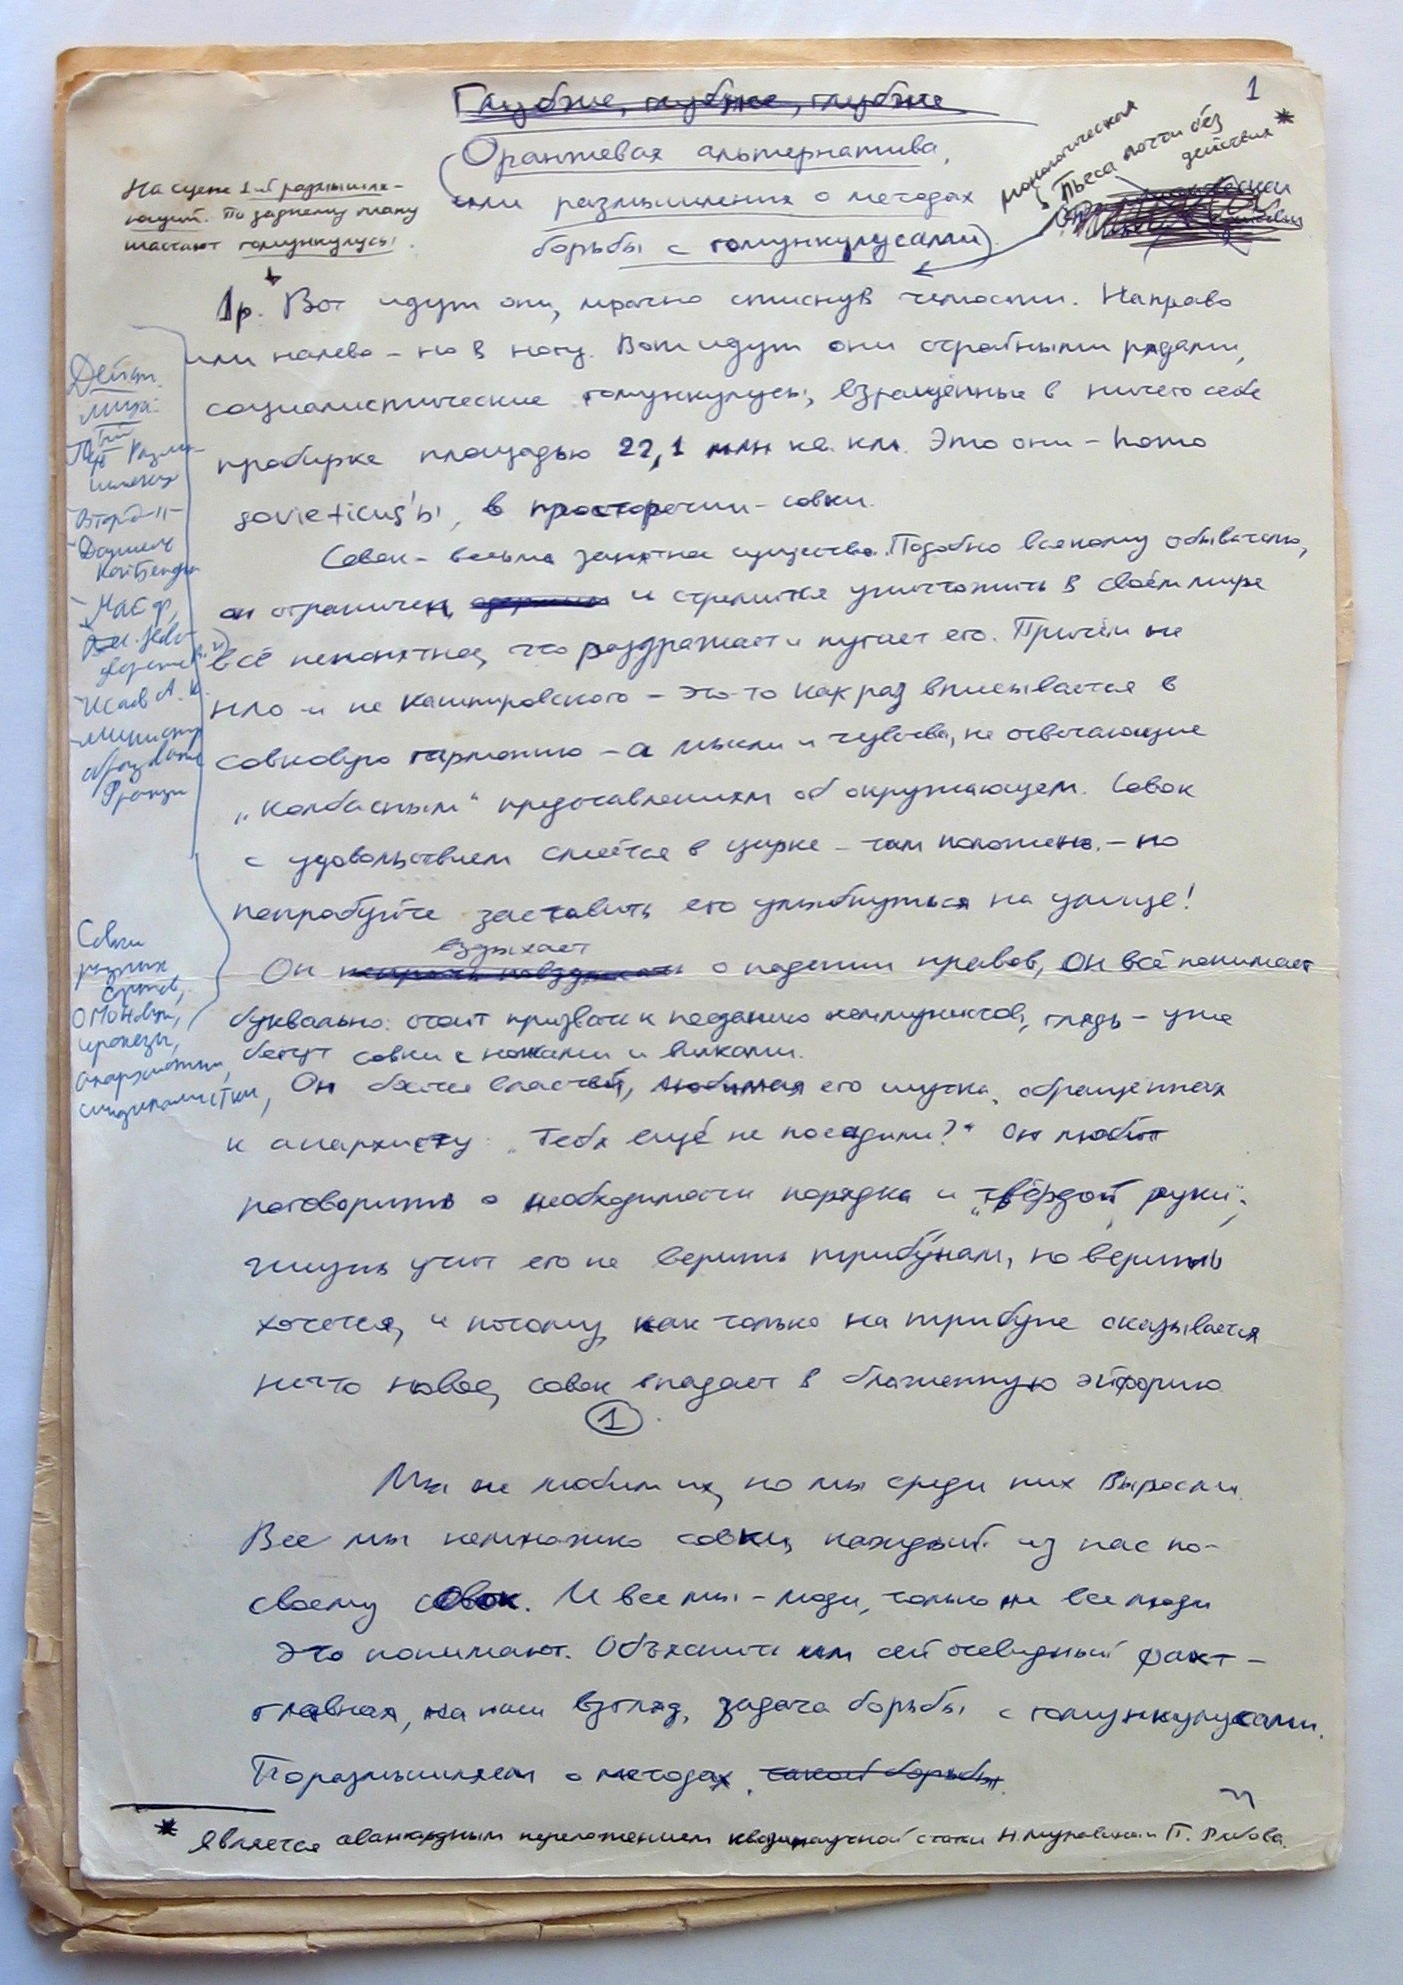 1
Глубже, глубже, глубже
Оранжевая альтернатива,
(или размышления о методах
борьбы с гомункулусами)
монологическая
пьеса почти без
действия *
На сцене 1-ый размышля-
ющий. По заднему плану
шастают гомункулусы.
1р. Вот идут они, мрачно стиснув челюсти. Направо
или налево – но в ногу. Вот идут они стройными рядами,
социалистические гомункулусы, взращённые в ничего себе
пробирке площадью 22,1 млн кв. км. Это они – homo
sovieticus'ы, в просторечии – совки.
Совок – весьма занятное существо. Подобно всякому обывателю,
он ограничен и стремится уничтожить в своём мире
всё непонятное, что раздражает и пугает его. Причём не
НЛО и не Кашпировского – это-то как раз вписывается в
совковую гармонию – а мысли и чувства, не отвечающие
„колбасным“ представлениям об окружающем. Совок
с удовольствием смеётся в цирке – там положено, – но
попробуйте заставить его улыбнуться на улице!
вздыхает
Он о падении нравов, он всё понимает
буквально: стоит призвать к поеданию коммунистов, глядь – уже
бегут совки с ножами и вилками.
Он боится властей, любимая его шутка, обращённая
к анархисту: „Тебя ещё не посадили?“ Он любит
поговорить о необходимости порядка и „твёрдой руки“;
жизнь учит его не верить трибунам, но верить
хочется, и потому, как только на трибуне оказывается
нечто новое, совок впадает в блаженную эйфорию.
1
Мы не любим их, но мы среди них выросли.
Все мы немножко совки, каждый из нас по-
своему совок. И все мы – люди, только не все люди
это понимают. Объяснить им сей очевидный факт –
главная, на наш взгляд, задача борьбы с гомункулусами.
Поразмышляем о методах такой борьбы.
* Является авангардным переложением квазинаучной статьи Н. Муравина и П. Рябова.
Действ.
лица:
1ый Размы-
шляющ
Второй –„–
Даниель
Кон-Бендит
Исаев А.
Министр
образования
Франции
Совки
разных
сортов,
омоновцы,
ирокезы,
анархистки,
синдикалистки,